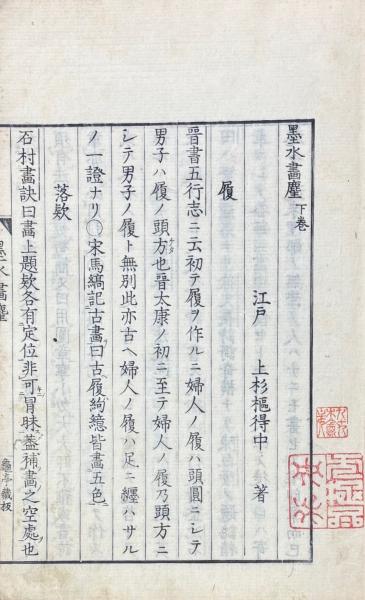 墨水畫塵 下巻
江戸 上杉樞得中 著
履
晉書五行志ニ云初テ履ヲ作ルニ婦人ノ履ハ頭圓ニシテ
男子ハ履ノ頭方也晉太康ノ初ニ至テ婦人ノ履乃頭方ニ
シテ男子ノ履ト無別此亦古ヘ婦人ノ履ハ足ニ纏ハサル
ノ一證ナリ〇宋馬縞記古畫曰古履絇繶皆畫五色
落欵
石村畫訣曰畫上題欵各有定位非可冒昧蓋補畫之空處也
墨水畫塵
亭藏板